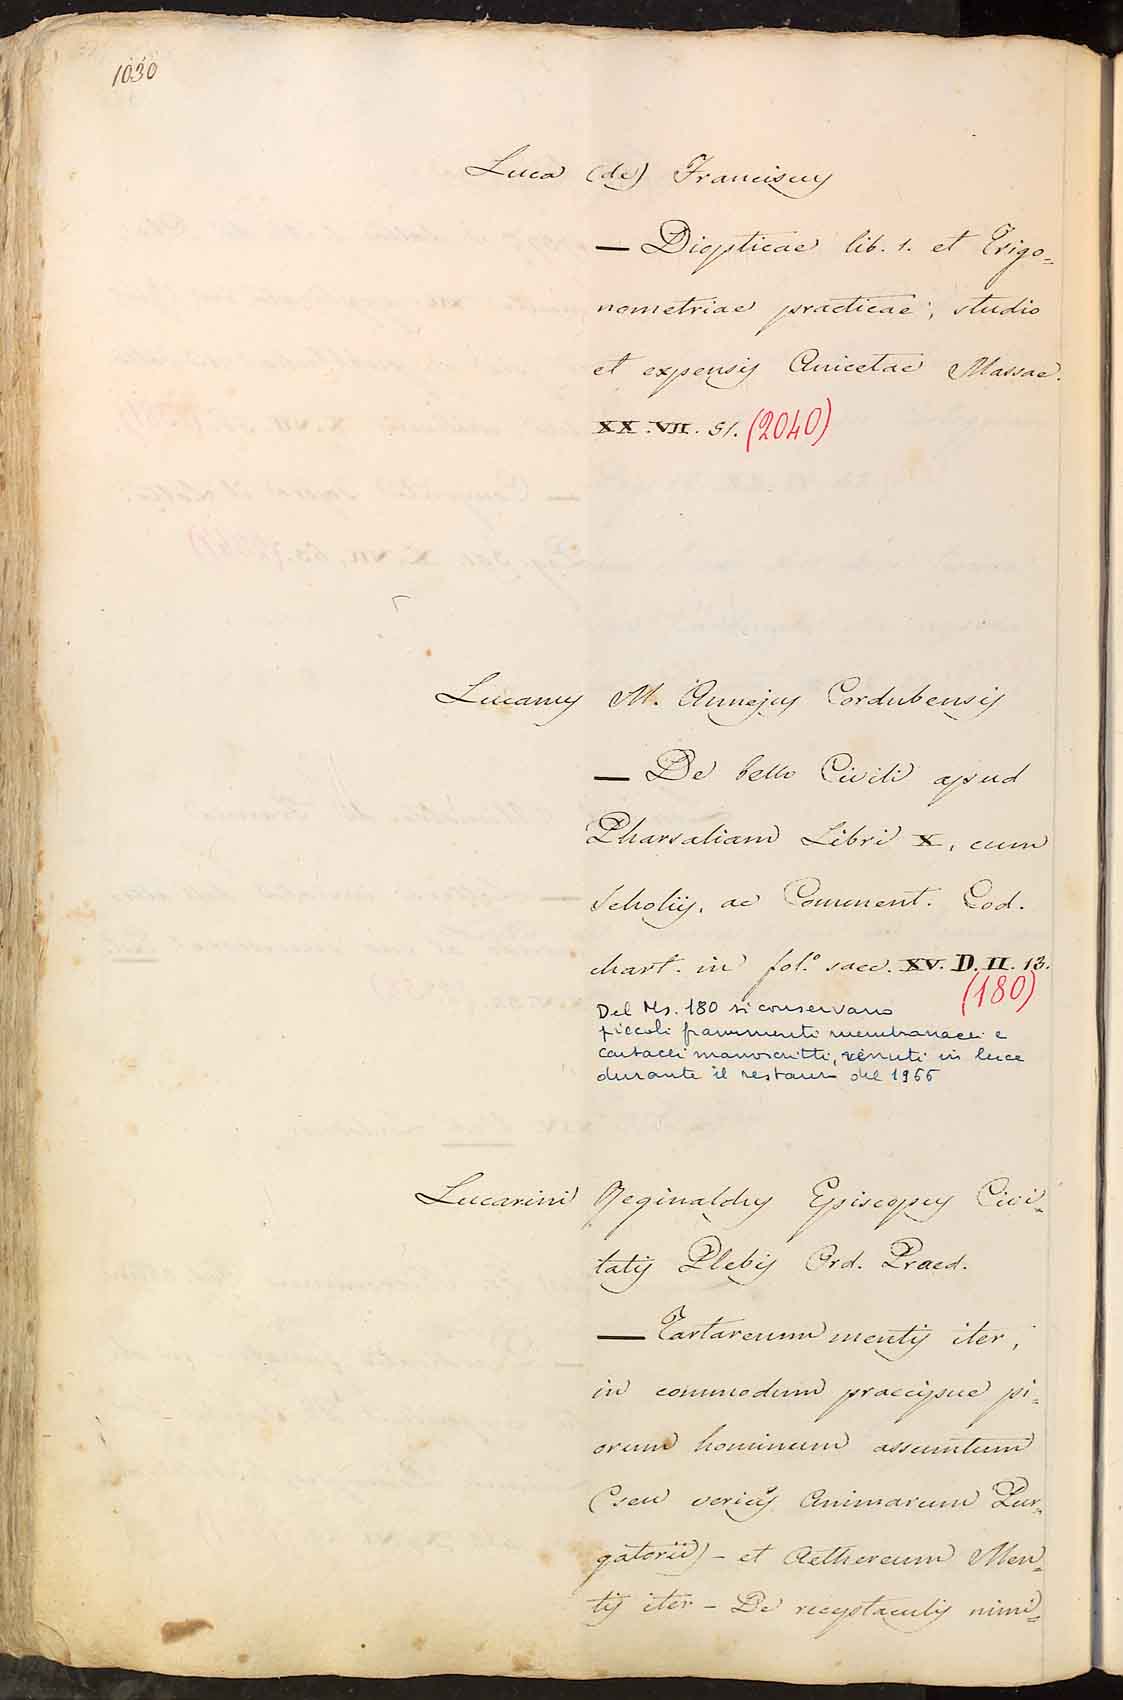 1030
Luca (de) Franciscus
— Diopticae lib. 1. et Trigo-
nometriae practicae, studio
et expensis Anicetae Massae.
XX. VII. 51. (2040)
Lucanus M. Annejus Cordubensis
— De bello Civili apud
Pharsaliam Libri X, cum
Scholiis, ac Comment. Cod.
chart. in fol.º saec. XV. D. II. 13.
(180)
Del Ms. 180 si conservano
piccoli frammenti membranacei e
cartacei manoscritti, venuti in luce
durante il restauro del 1966
Lucarini Reginaldus Episcopus Civi-
tatis Plebis Ord. Praed.
— Tartareum mentis iter,
in commodum praecipue pi-
orum hominum assumtum
(seu verius Animarum Pur-
gatorii) - et Aethereum Men-
tis iter - De receptaculis nimi-